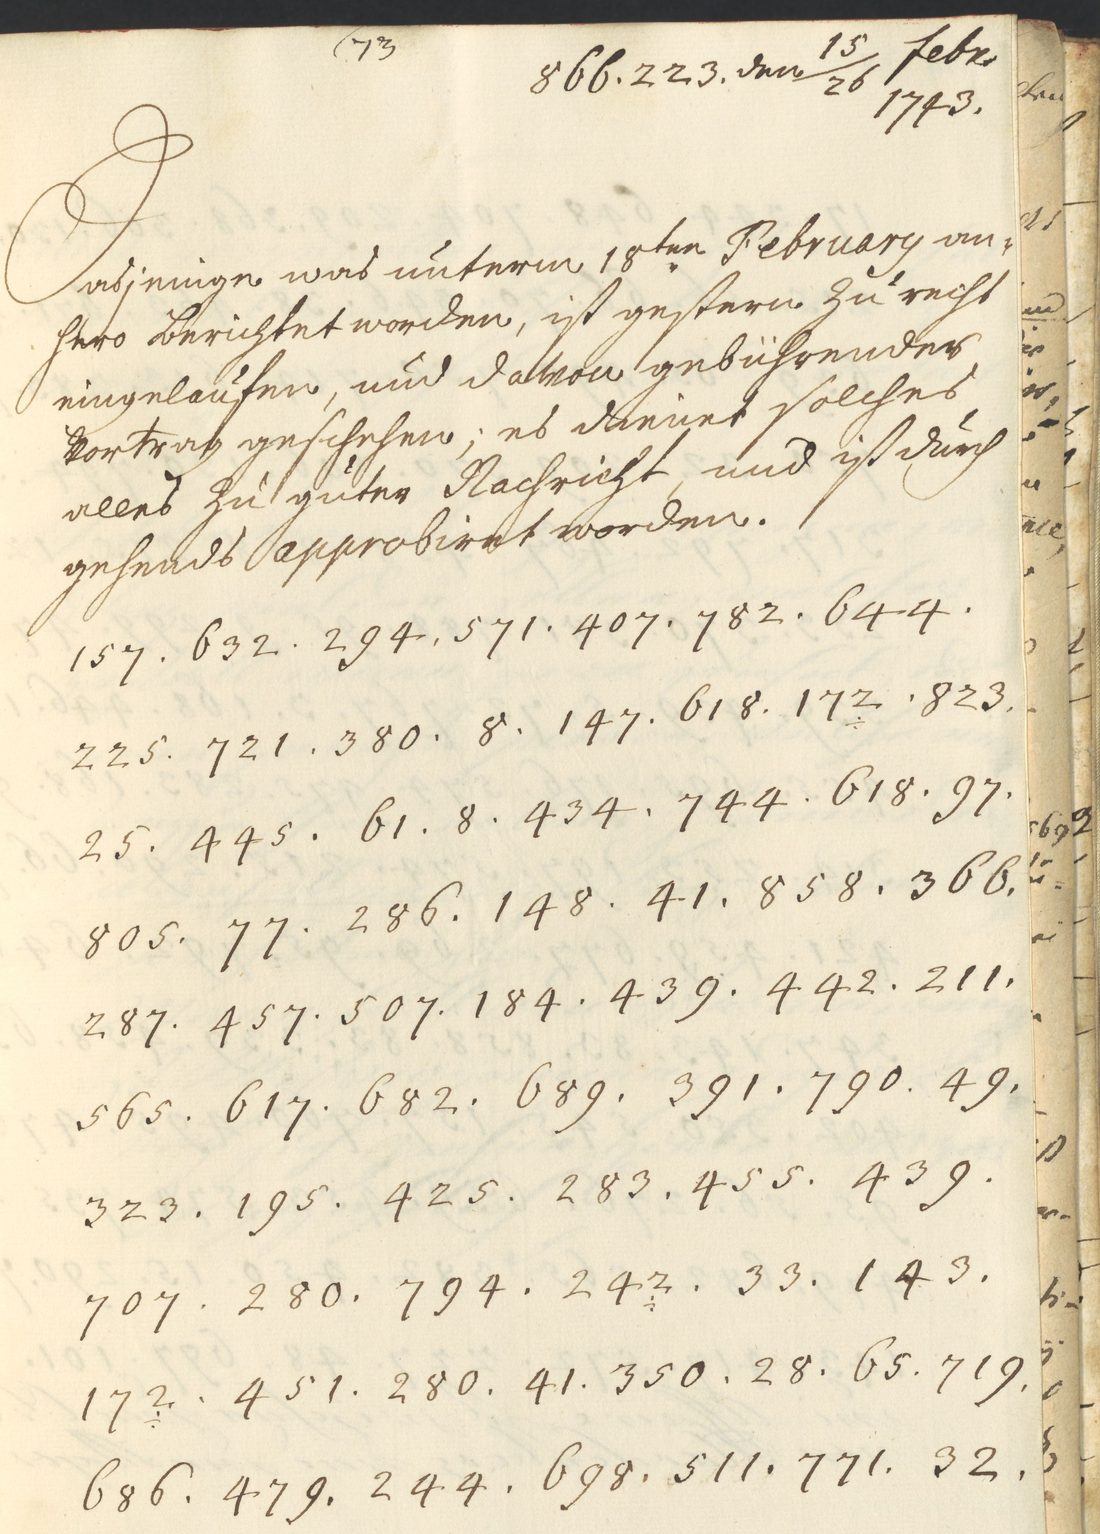 (73
866. 223. den 15/26 febr.
1743.
Dasjenige was unterm 18ten February an-
hero berichtet worden, ist gestern zu recht
eingelaufen, und davon gebührender
Vortrag geschehen; es dienet solches
alles zu guter Nachricht, und ist durch
gehends approbiret worden.
157. 632. 294. 571. 407. 782. 644.
225. 721. 380. 8. 147. 618. 172. 823.
25. 445. 61. 8. 434. 744. 618. 97.
805. 77. 286. 148. 41. 858. 366.
287. 457. 507. 184. 439. 442. 211.
565. 617. 682. 689. 391. 790. 49.
323. 195. 425. 283. 455. 439.
707. 280. 794. 242. 33. 143.
172. 451. 280. 41. 350. 28. 65. 719.
686. 479. 244. 698. 511. 771. 32.